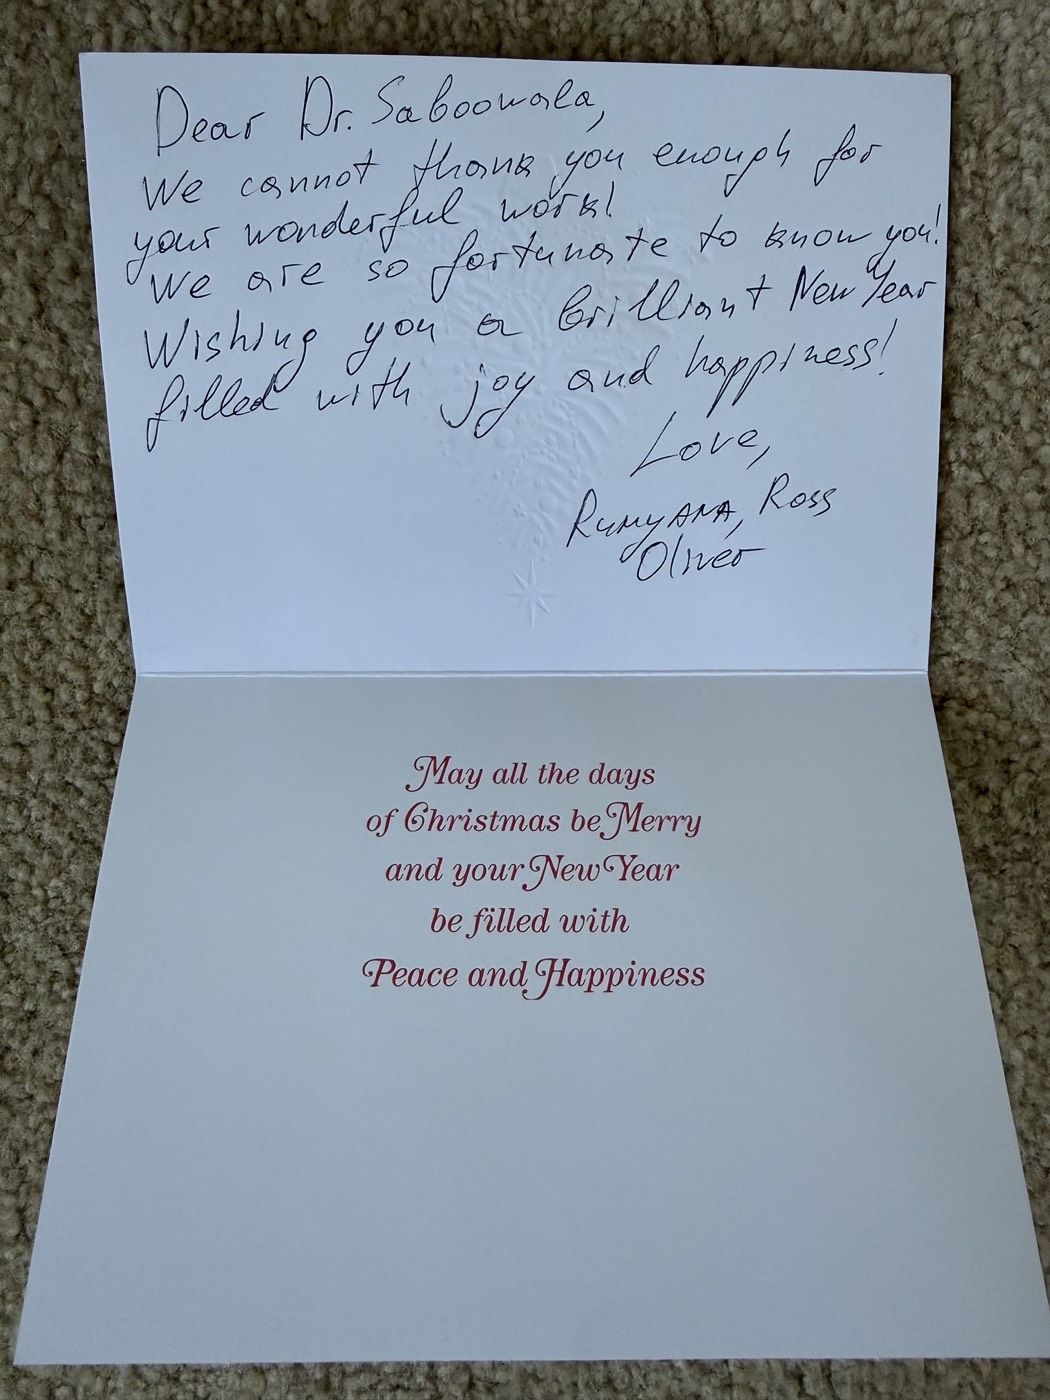 Dear Dr. Saboowala,
We cannot thank you enough for
your wonderful work!
We are so fortunate to know you!
Wishing you a brilliant New Year
filled with joy and happiness!
Love,
Rumyana, Ross
Oliver
May all the days
of Christmas be Merry
and your New Year
be filled with
Peace and Happiness